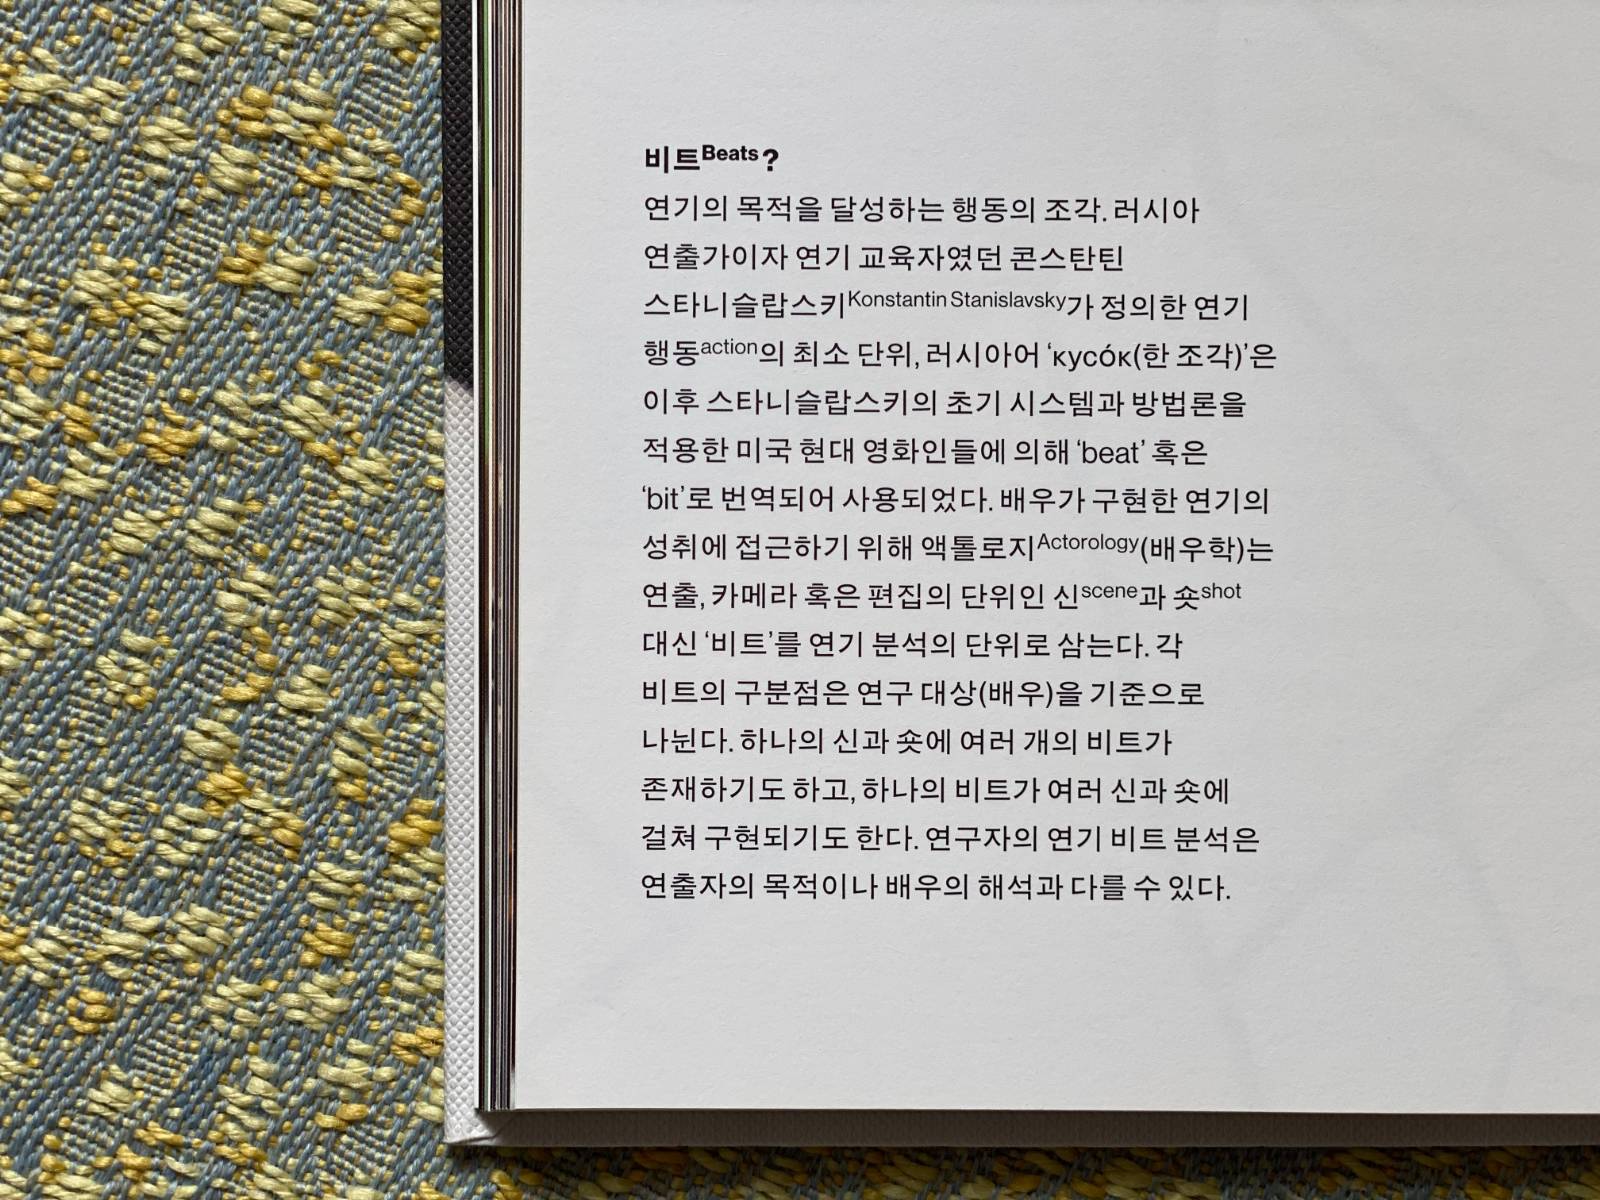 비트Beats?
연기의 목적을 달성하는 행동의 조각. 러시아
연출가이자 연기 교육자였던 콘스탄틴
스타니슬랍스키Konstantin Stanislavsky가 정의한 연기
행동action의 최소 단위, 러시아어 ‘кусóк(한 조각)’은
이후 스타니슬랍스키의 초기 시스템과 방법론을
적용한 미국 현대 영화인들에 의해 ‘beat’ 혹은
‘bit’로 번역되어 사용되었다. 배우가 구현한 연기의
성취에 접근하기 위해 액톨로지Actorology(배우학)는
연출, 카메라 혹은 편집의 단위인 신scene과 숏shot
대신 ‘비트’를 연기 분석의 단위로 삼는다. 각
비트의 구분점은 연구 대상(배우)을 기준으로
나뉜다. 하나의 신과 숏에 여러 개의 비트가
존재하기도 하고, 하나의 비트가 여러 신과 숏에
걸쳐 구현되기도 한다. 연구자의 연기 비트 분석은
연출자의 목적이나 배우의 해석과 다를 수 있다.